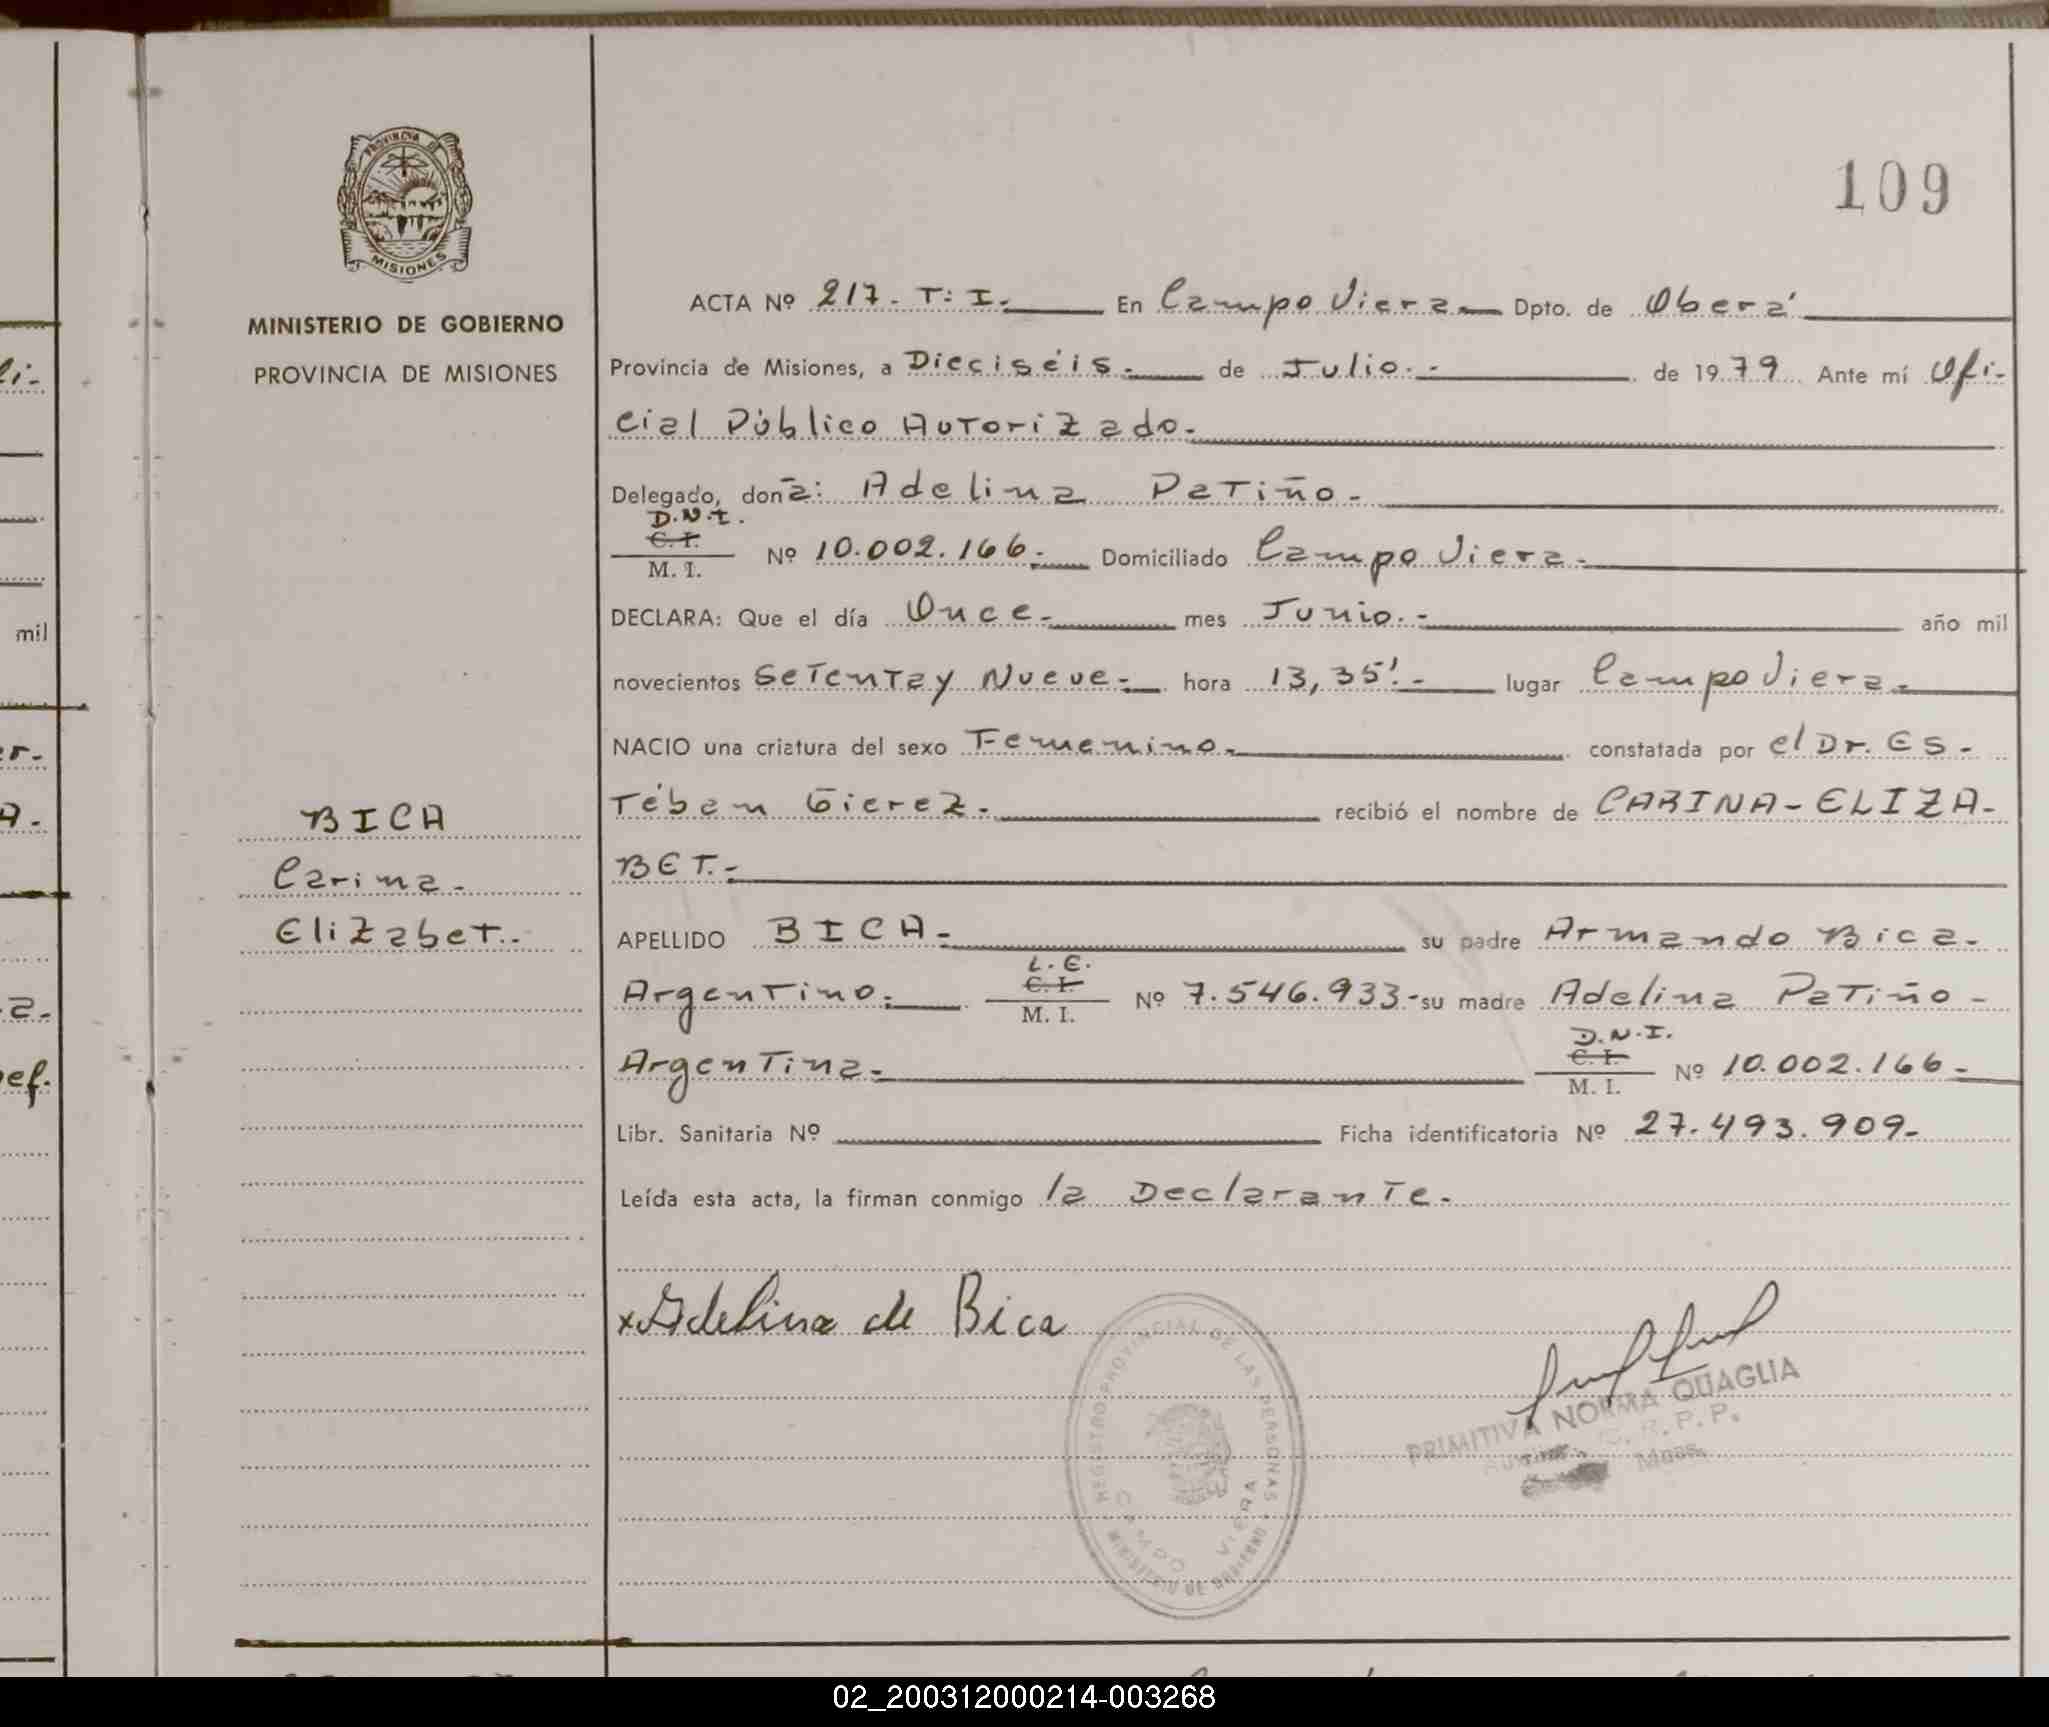 109
PROVINCIA DE
MISIONES
MINISTERIO DE GOBIERNO
PROVINCIA DE MISIONES
BICA
Carina.
Elizabet.-
ACTA Nº 217. T: I. En Campo Viera Dpto. de Oberá
Provincia de Misiones, a Dieciséis. de Julio.- de 1979 Ante mí Ofi-
cial Público Autorizado.
Delegado, doña: Adelina Patiño.
D.N.I.
C. I.
M. I. Nº 10.002.166. Domiciliado Campo Viera.
DECLARA: Que el día Once. mes Junio.- año mil
novecientos Setenta y Nueve. hora 13,35'.- lugar Campo Viera.
NACIO una criatura del sexo Femenino. constatada por el Dr. Es-
téban Gierez. recibió el nombre de CARINA-ELIZA-
BET.-
APELLIDO BICA. su padre Armando Bica.
Argentino. L.E.
C. I.
M. I. Nº 7.546.933- su madre Adelina Patiño-
Argentina. D.N.I.
C. I.
M. I. Nº 10.002.166-
Libr. Sanitaria Nº Ficha identificatoria Nº 27.493.909-
Leída esta acta, la firman conmigo la Declarante.
x Adelina de Bica
REGISTRO PROVINCIAL DE LAS PERSONAS
CAMPO VIERA
MINISTERIO DE GOBIERNO
PRIMITIVA NORMA QUAGLIA
R.P.P.
Mnes.
li-
mil
er-
A.
a.
ef.
02_200312000214-003268